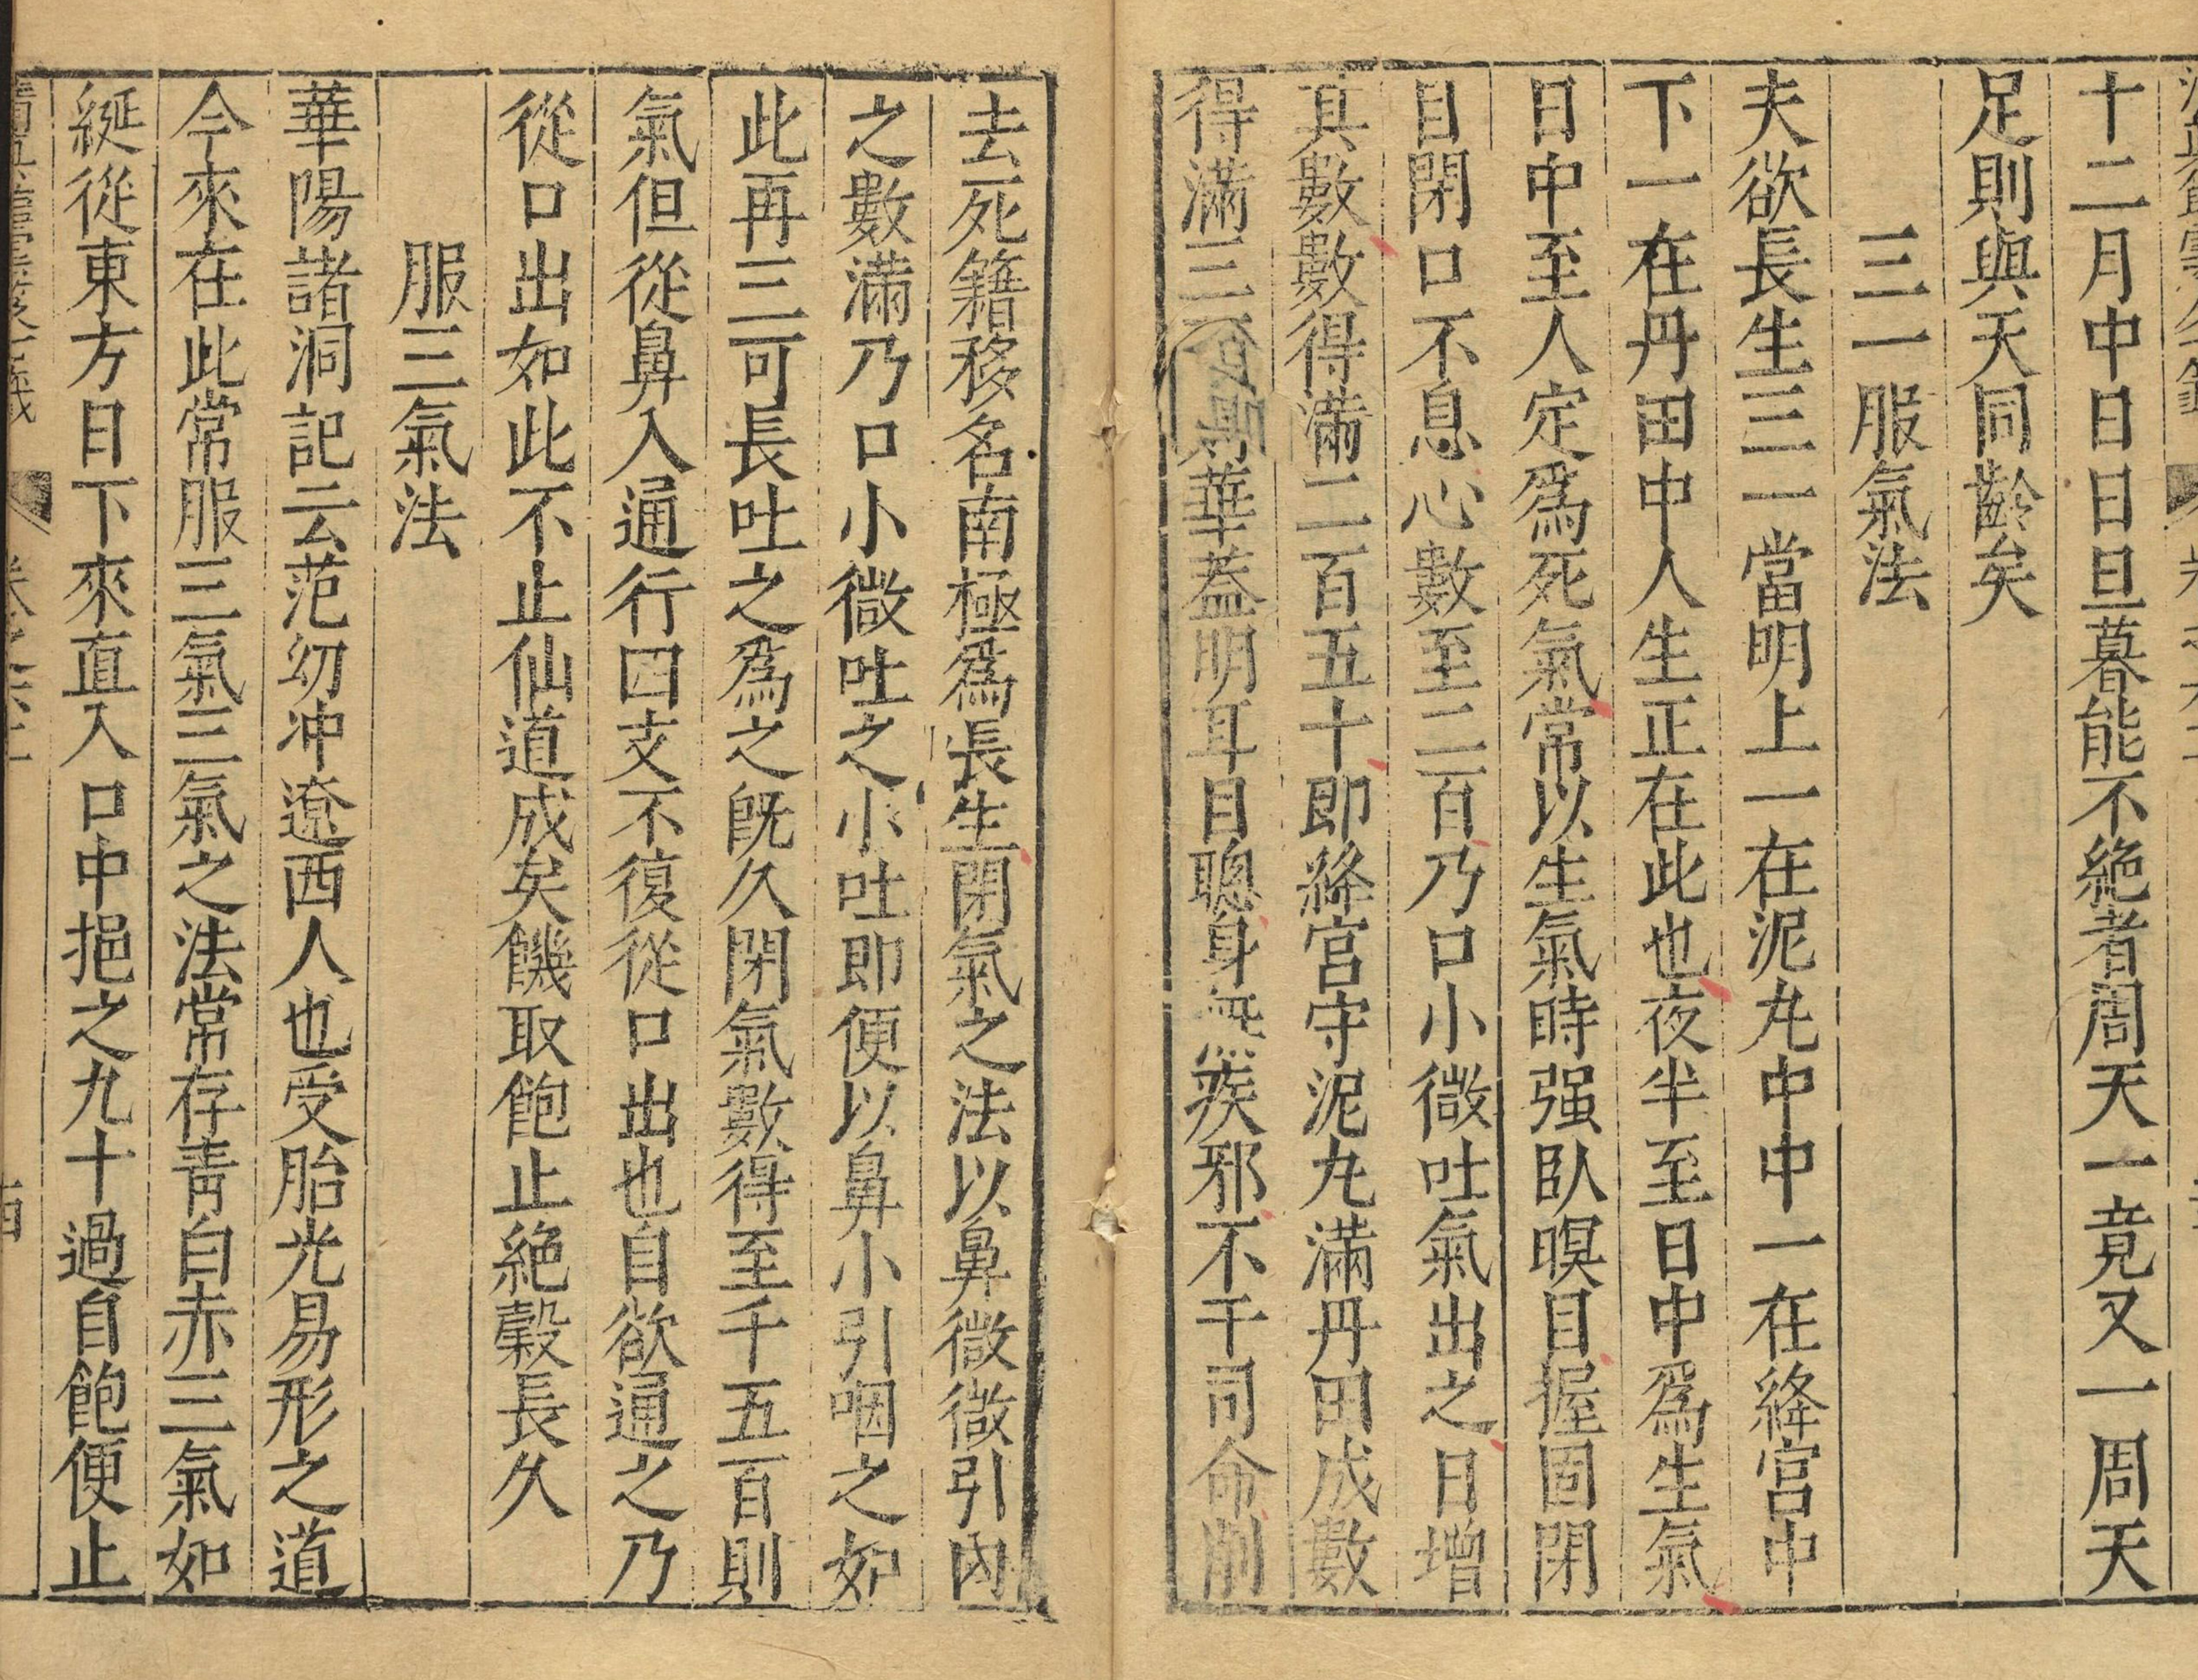 十二月中日日旦暮能不絶者周天一竟又一周天
足則與天同齡矣
三一服氣法
夫欲長生三一當明上一在泥丸中中一在絳宮中
下一在丹田中人生正在此也夜半至日中爲生氣
日中至人定爲死氣常以生氣時强臥暝目握固閉
目閉口不息心數至二百乃口小微吐氣出之日增
其數數得滿二百五十即絳宮守泥丸滿丹田成數
得滿三百則華蓋明耳目聰身無疾邪不干司命削
去死籍移名南極爲長生閉氣之法以鼻微微引內
之數滿乃口小微吐之小吐即便以鼻小引咽之如
此再三可長吐之爲之旣久閉氣數得至千五百則
氣但從鼻入通行四支不復從口出也自欲通之乃
從口出如此不止仙道成矣饑取飽止絶穀長久
服三氣法
華陽諸洞記云范幼冲遼西人也受胎光易形之道
今來在此常服三氣三氣之法常存靑白赤三氣如
綖從東方目下來直入口中挹之九十過自飽便止